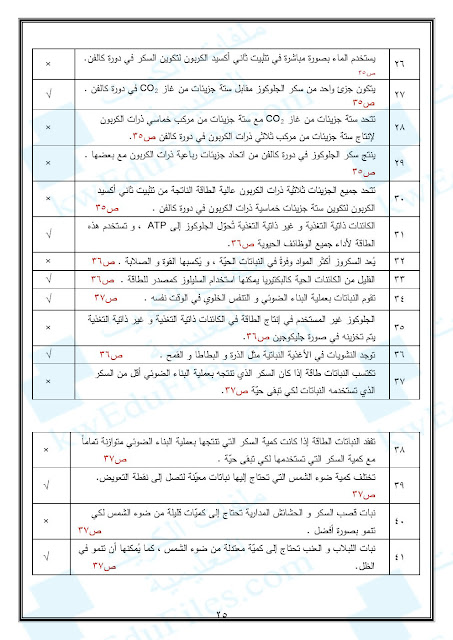 ٢٦ يستخدم الماء بصورة مباشرة في تثبيت ثاني أكسيد الكربون لتكوين السكر في دورة كالفن. ×
ص٣٥
٢٧ يتكون جزئ واحد من سكر الجلوكوز مقابل ستة جزيئات من غاز CO₂ في دورة كالفن . √
ص٣٥
٢٨ تتحد ستة جزيئات من غاز CO₂ مع ستة جزيئات من مركب خماسي ذرات الكربون ×
لإنتاج ستة جزيئات من مركب ثلاثي ذرات الكربون في دورة كالفن ص٣٥.
٢٩ ينتج سكر الجلوكوز في دورة كالفن من اتحاد جزيئات رباعية ذرات الكربون مع بعضها . ×
ص٣٥
٣٠ تتحد جميع الجزيئات ثلاثية ذرات الكربون عالية الطاقة الناتجة من تثبيت ثاني أكسيد ×
الكربون لتكوين ستة جزيئات خماسية ذرات الكربون في دورة كالفن . ص٣٥
٣١ الكائنات ذاتية التغذية و غير ذاتية التغذية تُحوّل الجلوكوز إلى ATP ، و تستخدم هذه √
الطاقة لأداء جميع الوظائف الحيوية ص٣٦.
٣٢ يُعد السكروز أكثر المواد وفرةً في النباتات الحيّة ، و يُكسبها القوة و الصلابة . ص٣٦ ×
٣٣ القليل من الكائنات الحية كالبكتيريا يمكنها استخدام السليلوز كمصدر للطاقة . ص٣٦ √
٣٤ تقوم النباتات بعملية البناء الضوئي و التنفس الخلوي في الوقت نفسه . ص٣٧ √
٣٥ الجلوكوز غير المستخدم في إنتاج الطاقة في الكائنات ذاتية التغذية و غير ذاتية التغذية ×
يتم تخزينه في صورة جليكوجين ص٣٦.
٣٦ توجد النشويات في الأغذية النباتية مثل الذرة و البطاطا و القمح . ص٣٦ √
٣٧ تكتسب النباتات طاقة إذا كان السكر الذي تنتجه بعملية البناء الضوئي أقل من السكر ×
الذي تستخدمه النباتات لكي تبقى حيّة ص٣٧.
٣٨ تفقد النباتات الطاقة إذا كانت كمية السكر التي تنتجها بعملية البناء الضوئي متوازنة تماماً ×
مع كمية السكر التي تستخدمها لكي تبقى حيّة . ص٣٧
٣٩ تختلف كمية ضوء الشمس التي تحتاج إليها نباتات معيّنة لتصل إلى نقطة التعويض. √
ص٣٧
٤٠ نبات قصب السكر و الحشائش المدارية تحتاج إلى كميّات قليلة من ضوء الشمس لكي ×
تنمو بصورة أفضل . ص٣٧
٤١ نبات اللبلاب و العنب تحتاج إلى كميّة معتدلة من ضوء الشمس ، كما يُمكنها أن تنمو في √
الظل. ص٣٧
٢٥
kwEduFiles.com